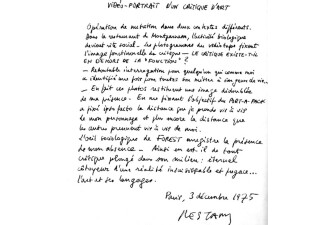 VIDÉO-PORTRAIT D'UN CRITIQUE D'ART
Opération de mutation dans deux contextes différents.
Dans le restaurant de Montparnasse, l'activité biologique
devient vite social. Les photogrammes du vidéotape fixent
l'image fonctionnelle du critique — LE CRITIQUE EXISTE-T-IL
EN DEHORS DE LA "FONCTION" ?
— Redoutable interrogation pour quelqu'un qui comme moi
a identifié une fois pour toutes son métier à son genre de vie.
— En fait ces photos restituent une image dédoublée
de ma présence. En me fixant l'objectif du PORT-A-PACK
a fixé la distance que je prends vis à vis
de mon personnage et plus encore la distance que
les autres prennent vis à vis de moi.
L'œil sociologique de FOREST enregistre la présence
de mon absence — Ainsi en est-il de tout
critique plongé dans son milieu : éternel
d'une réalité insaisissable et fugace...
l'art et ses langages.
Paris, 3 décembre 1975
RESTANY